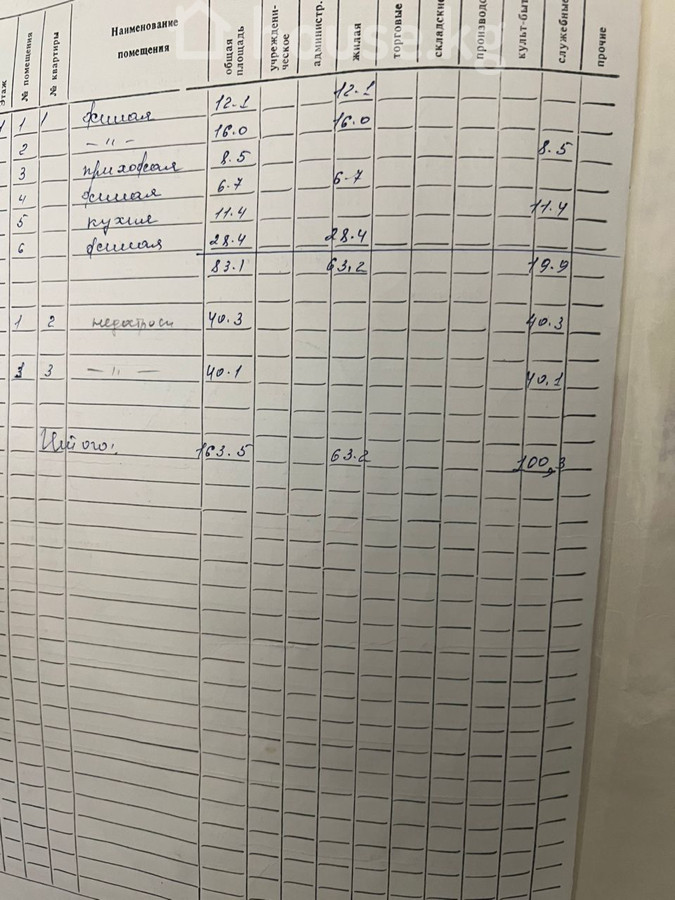 house.kg
Этаж № помещения № квартиры Наименование помещения общая площадь учреждени-ческое администр. жилая торговые складские производс культ-быт служебные прочие
1 1 1 жилая 12.1 12.1
2 — " — 16.0 16.0
3 прихожая 8.5 8.5
4 жилая 6.7 6.7
5 кухня 11.4 11.4
6 жилая 28.4 28.4
83.1 63,2 19.9
1 2 недострой 40.3 40.3
3 3 — " — 40.1 40.1
Итого: 163.5 63.2 100,3